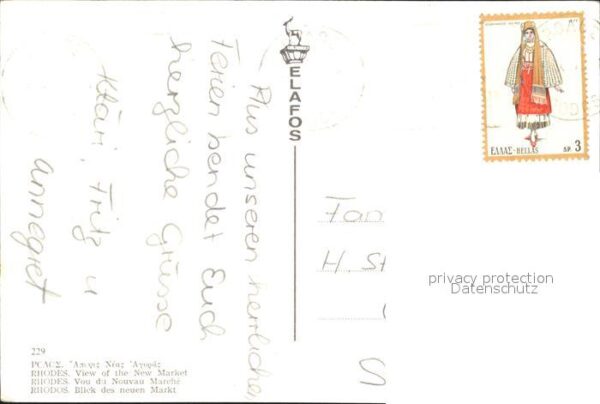 Aus unseren herrlichen
Ferien sendet Euch
herzliche Grüsse
Kläri, Fritz u
Annegret
ELAFOS
ΕΛΛΑΣ-HELLAS ΔΡ 3
Fam
H. St
privacy protection
Datenschutz
229
ΡΟΔΟΣ. Ἄποψις Νέας Ἀγορᾶς
RHODES. View of the New Market
RHODES. Vou du Nouvau Marché
RHODOS. Blick des neuen Markt